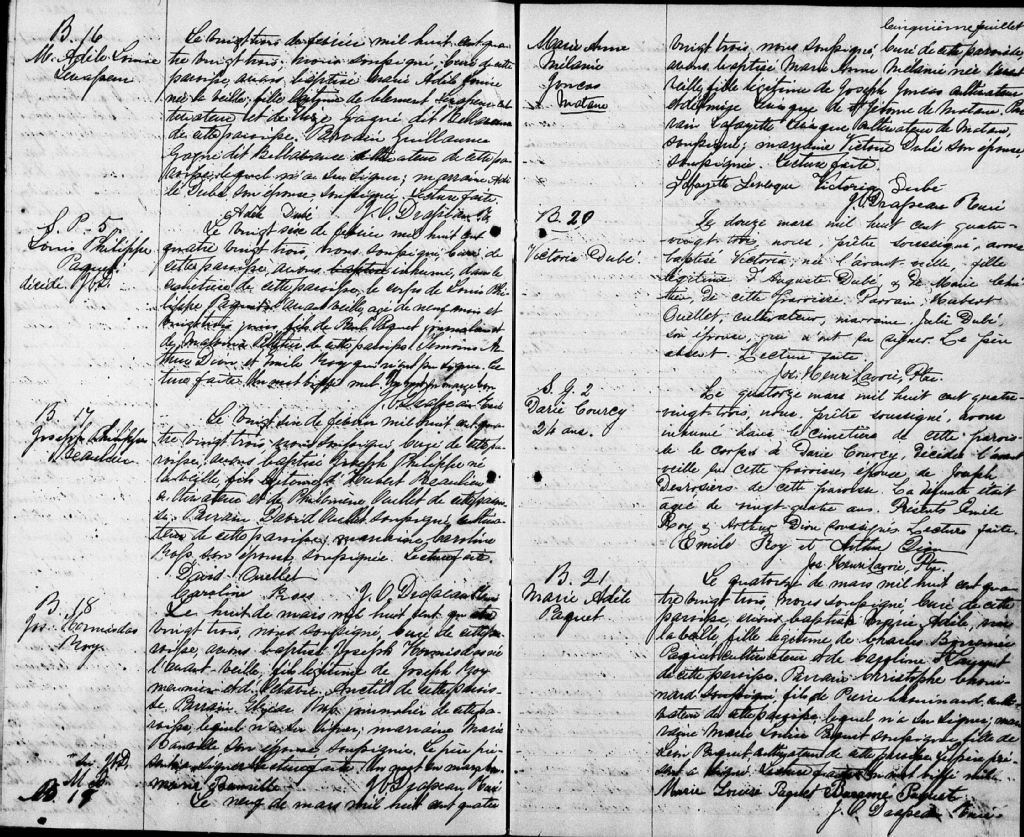 B. 16
M. Adèle Louise
Le vingt trois de février mil huit cent qua
tre vingt trois, nous soussigné, curé de cette
paroisse avons baptisé Marie Adèle Louise
née la veille, fille légitime de Clément cul
tivateur et de Gagné dit Bellavance
de cette paroisse. Parrain Guillaume
Gagné dit Bellavance cultivateur de cette pa
roisse, lequel n'a su signer; marraine Adè
le Dubé, son épouse, soussignée. Lecture faite.
Adèle Dubé J. O. Drapeau Ptre
S. P. 5
Louis Philippe
Paquet
décédé
Le vingt six de février mil huit cent
quatre vingt trois, nous soussigné curé de
cette paroisse, avons baptisé inhumé, dans le
cimetière de cette paroisse, le corps de Louis Phi
lippe Paquet avant veille, agé de neuf mois et
vingt jours, fils de Paul Paquet journalier et
de Pelletier de cette paroisse. Témoins Ar
thur Dion et Emile Roy qui n'ont pu signer. Lec
ture faite. Un mot biffé nul.
Drapeau Curé
B. 17
Joseph Philippe
Beaulieu
Le vingt de février mil huit cent qua
tre vingt trois, nous soussigné curé de cette pa
roisse, avons baptisé Joseph Philippe né
la veille, fils légitime d'Hubert Beaulieu
cultivateur et de Philomène Ouellet de cette parois
se. Parrain David Ouellet soussigné, cultiva
teur de cette paroisse; marraine Caroline
Ross son épouse, soussignée. Lecture faite
David Ouellet
Caroline Ross J. O. Drapeau Curé
B. 18
Jos. Hormisdas
Roy
Le huit de mars mil huit cent quatre
vingt trois, nous soussigné, curé de cette pa
roisse, avons baptisé Joseph Hormisdas né
l'avant veille, fils légitime de Joseph Roy
meunier et d' Anctil de cette parois
se. Parrain Ross journalier de cette pa
roisse, lequel n'a su signer; marraine Marie
Banville son épouse soussignée. Le père pré
sent a signé. Lecture faite. Un mot en marge bon
Marie Banville J. O. Drapeau Curé
B. 19
Le neuf de mars mil huit cent quatre
Marie Anne
Mélanie
Joncas
Matane
Cinquième feuillet
vingt trois, nous soussigné, curé de cette paroisse,
avons baptisé Marie Anne Mélanie née l'avant
veille, fille légitime de Joseph Joncas cultivateur
et d' Lévesque de St Jérome de Matane. Par
rain Lafayette Lévesque cultivateur de Matane,
soussigné; marraine Victoria Dubé son épouse,
soussignée. Lecture faite
Lafayette Levesque Victoria Dubé
J. O. Drapeau Curé
B. 20
Victoria Dubé.
Le douze mars mil huit cent quatre-
vingt trois, nous prêtre soussigné, avons
baptisé Victoria, née l'avant veille, fille
légitime d'Auguste Dubé, & de Marie
de cette paroisse. Parrain, Hubert
Ouellet, cultivateur, marraine, Julie Dubé,
son épouse, qui n'ont su signer. Le père
absent. Lecture faite.
Jos. Henri Lavoie, Ptre.
S. g. 2
Darie Courcy
24 ans.
Le quatorze mars mil huit cent quatre-
vingt trois, nous, prêtre soussigné, avons
inhumé dans le cimetière de cette parois
se le corps à Darie Courcy, décédée l'avant
veille en cette paroisse, épouse de Joseph
Desrosiers de cette paroisse. La défunte était
agée de vingt-quatre ans. Présents Emile
Roy & Arthur Dion soussignés. Lecture faite.
Emile Roy et Arthur Dion
Jos. Henri Lavoie, Ptre.
B. 21
Marie Adèle
Paquet
Le quatorze de mars mil huit cent qua
tre vingt trois, nous soussigné, curé de cette
paroisse, avons baptisé Marie Adèle, née
la veille, fille légitime de Charles
Paquet cultivateur et de Caroline
de cette paroisse. Parrain Christophe Choui
nard soussigné, fils de Pierre Chouinard, culti
vateur de cette paroisse, lequel n'a su signer; mar
raine Marie Louise Paquet soussignée fille de
Paquet cultivateur de cette paroisse. Le père pré
sent a signé. Lecture faite. un mot biffé nul.
Marie Louise Paquet Paquet
J. O. Drapeau Curé